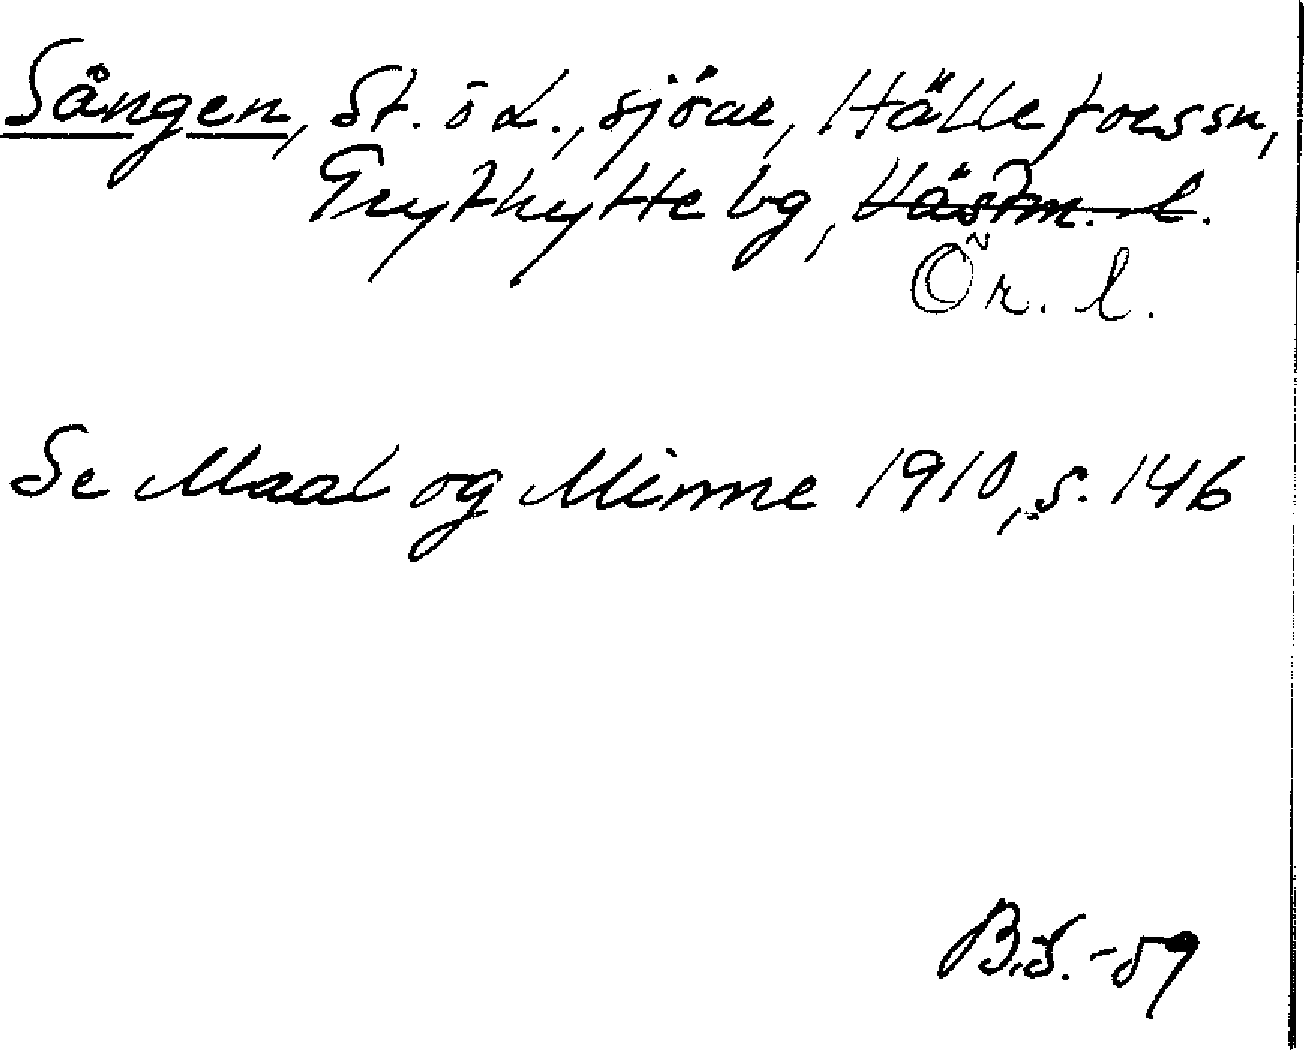 Sången, St. ö L., sjöar, Hällefors sn,
Grythytte bg, Västm. l.
Ör. l.
Se Maal og Minne 1910, s. 146
B.S. -59